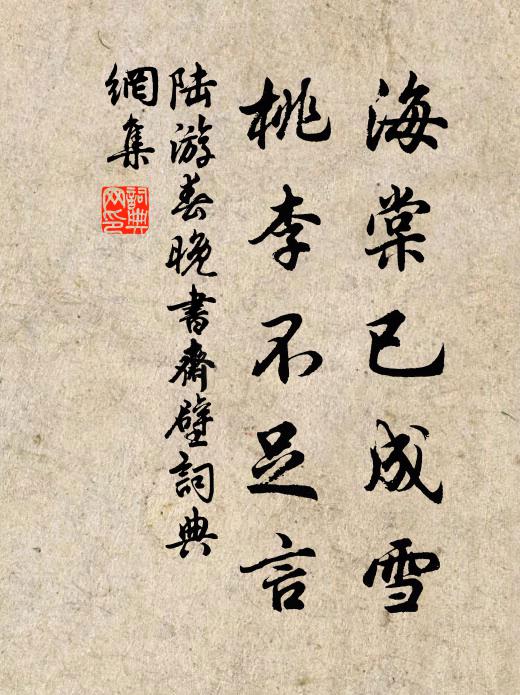 海棠已成雪
桃李不足言
陆游春晚书斋壁词典
網集
詞典网印